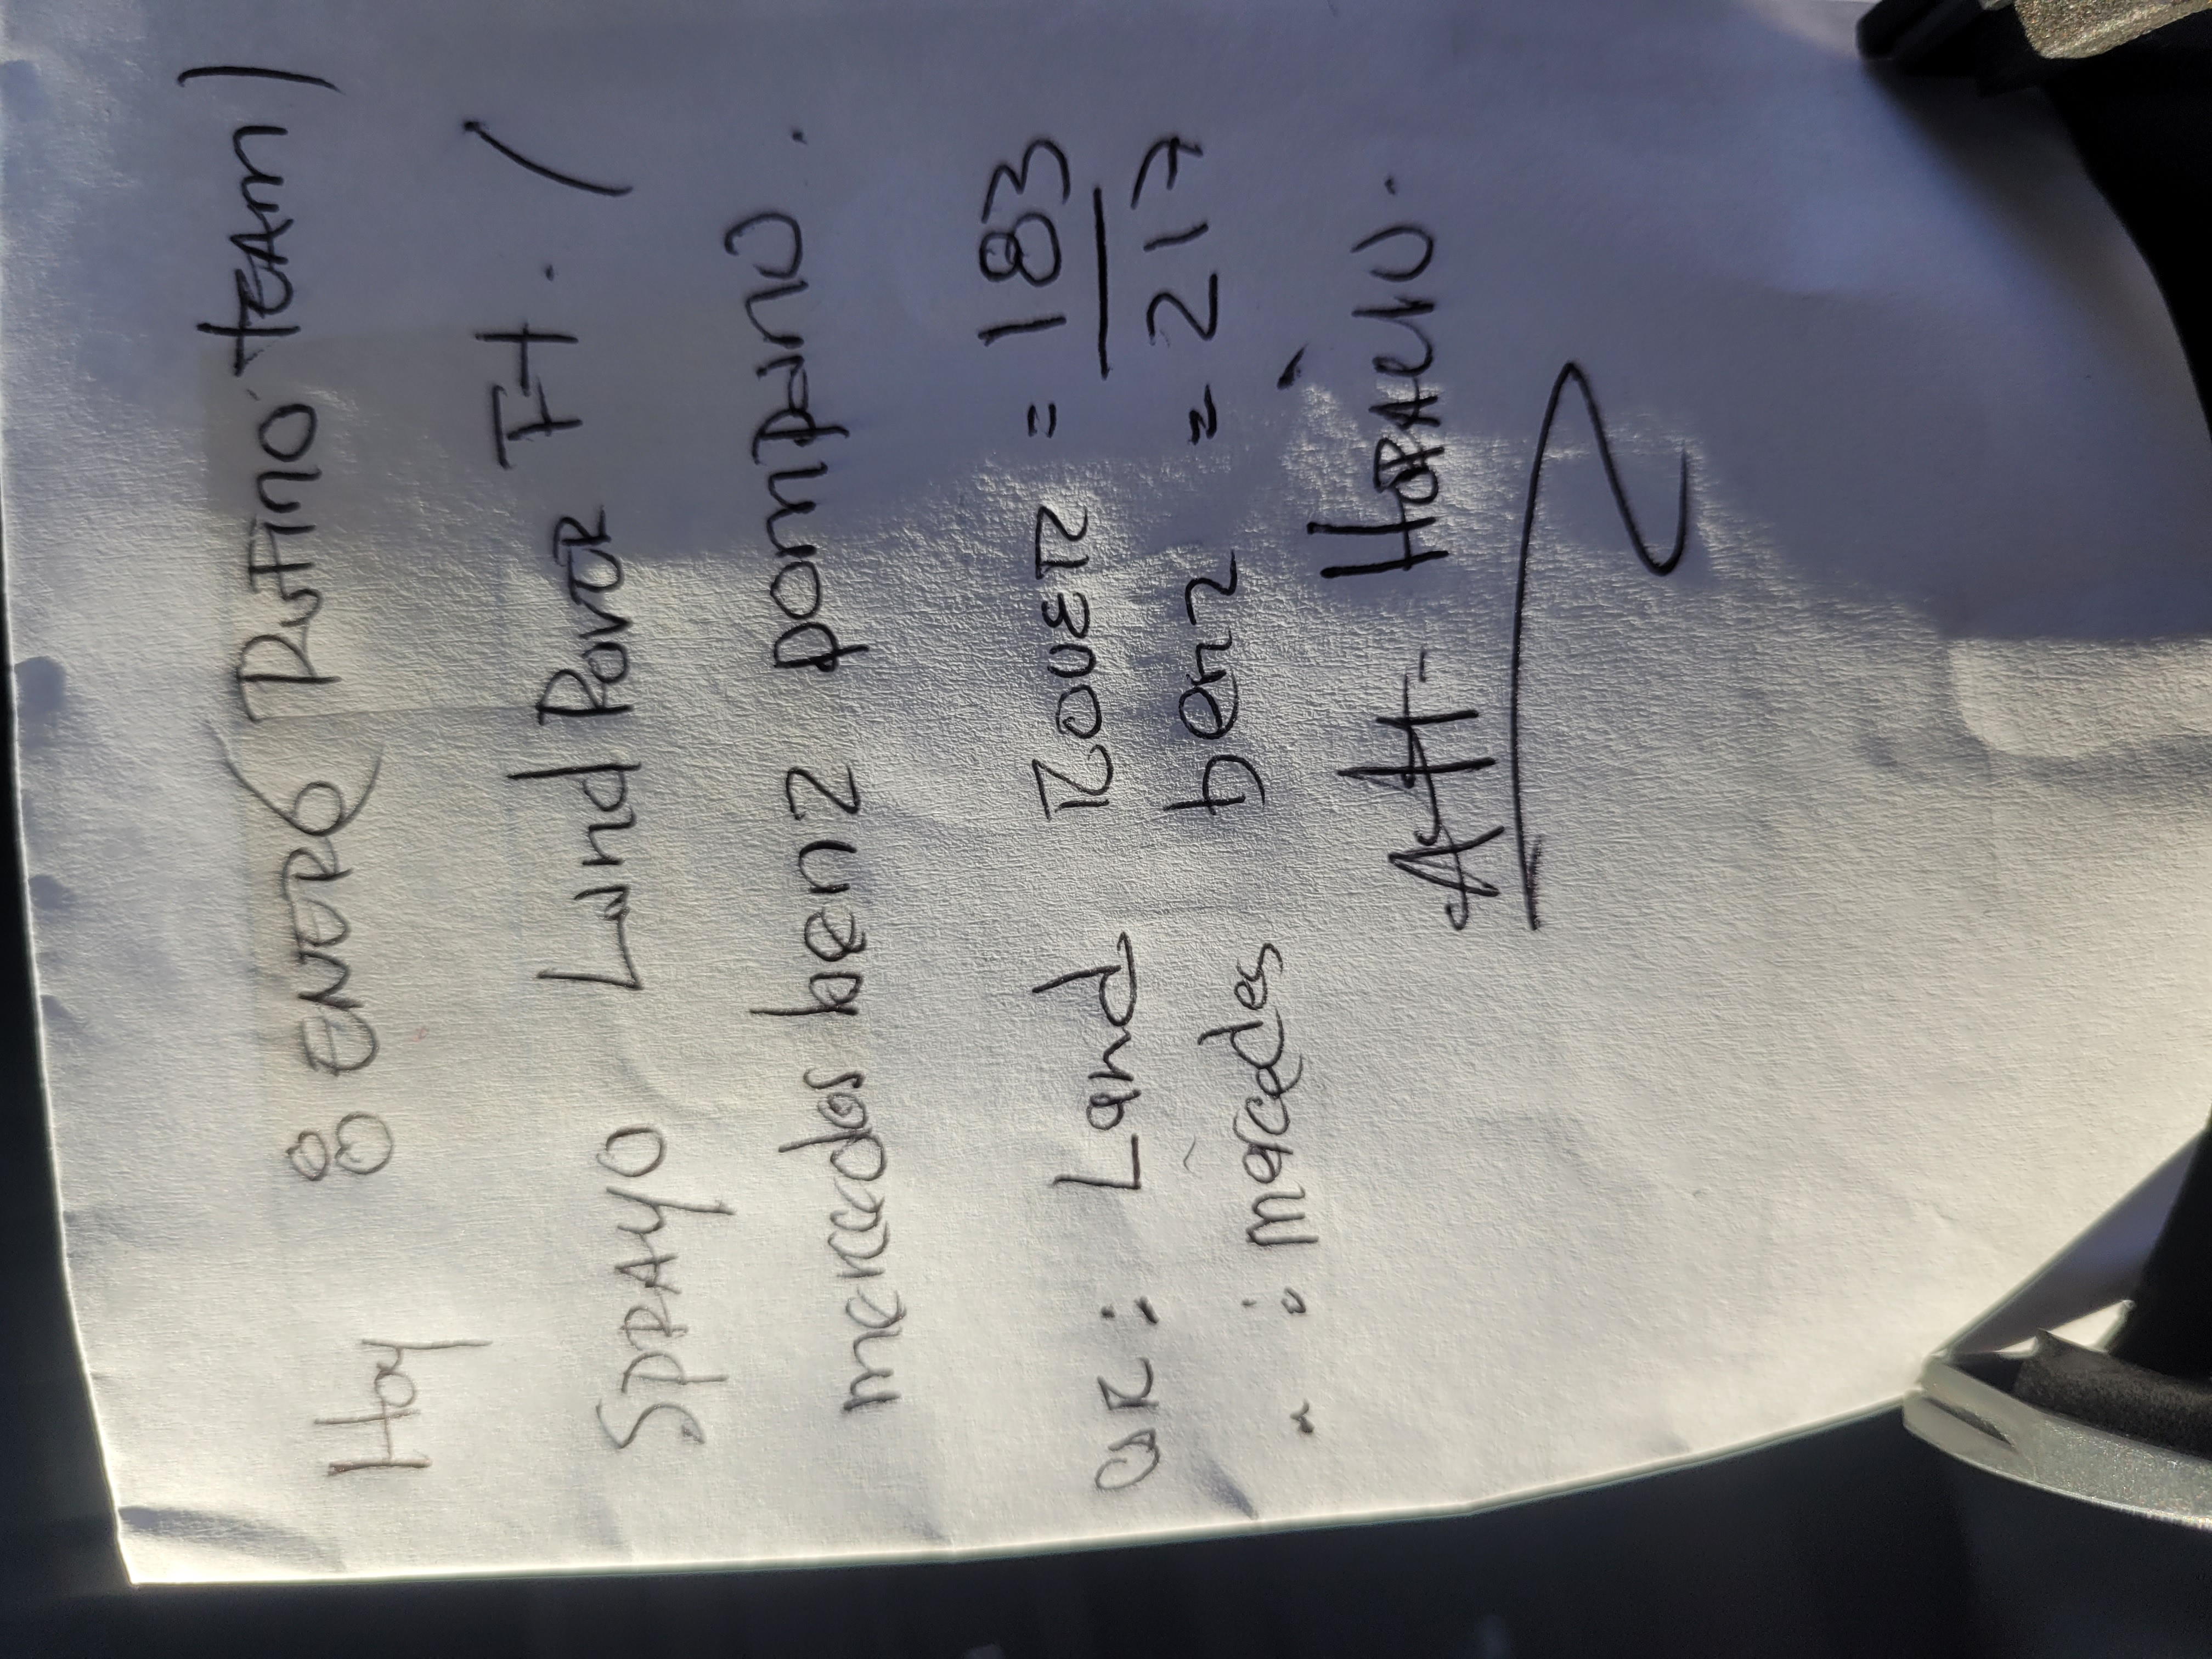 Hoy 8 ENERO (Rufino team)
SPRAYO Land Rover Ft. /
mercedes benz pompano.
QR: Land ROVER = 183
" : mercedes benz = 217
Att- HORACIO.